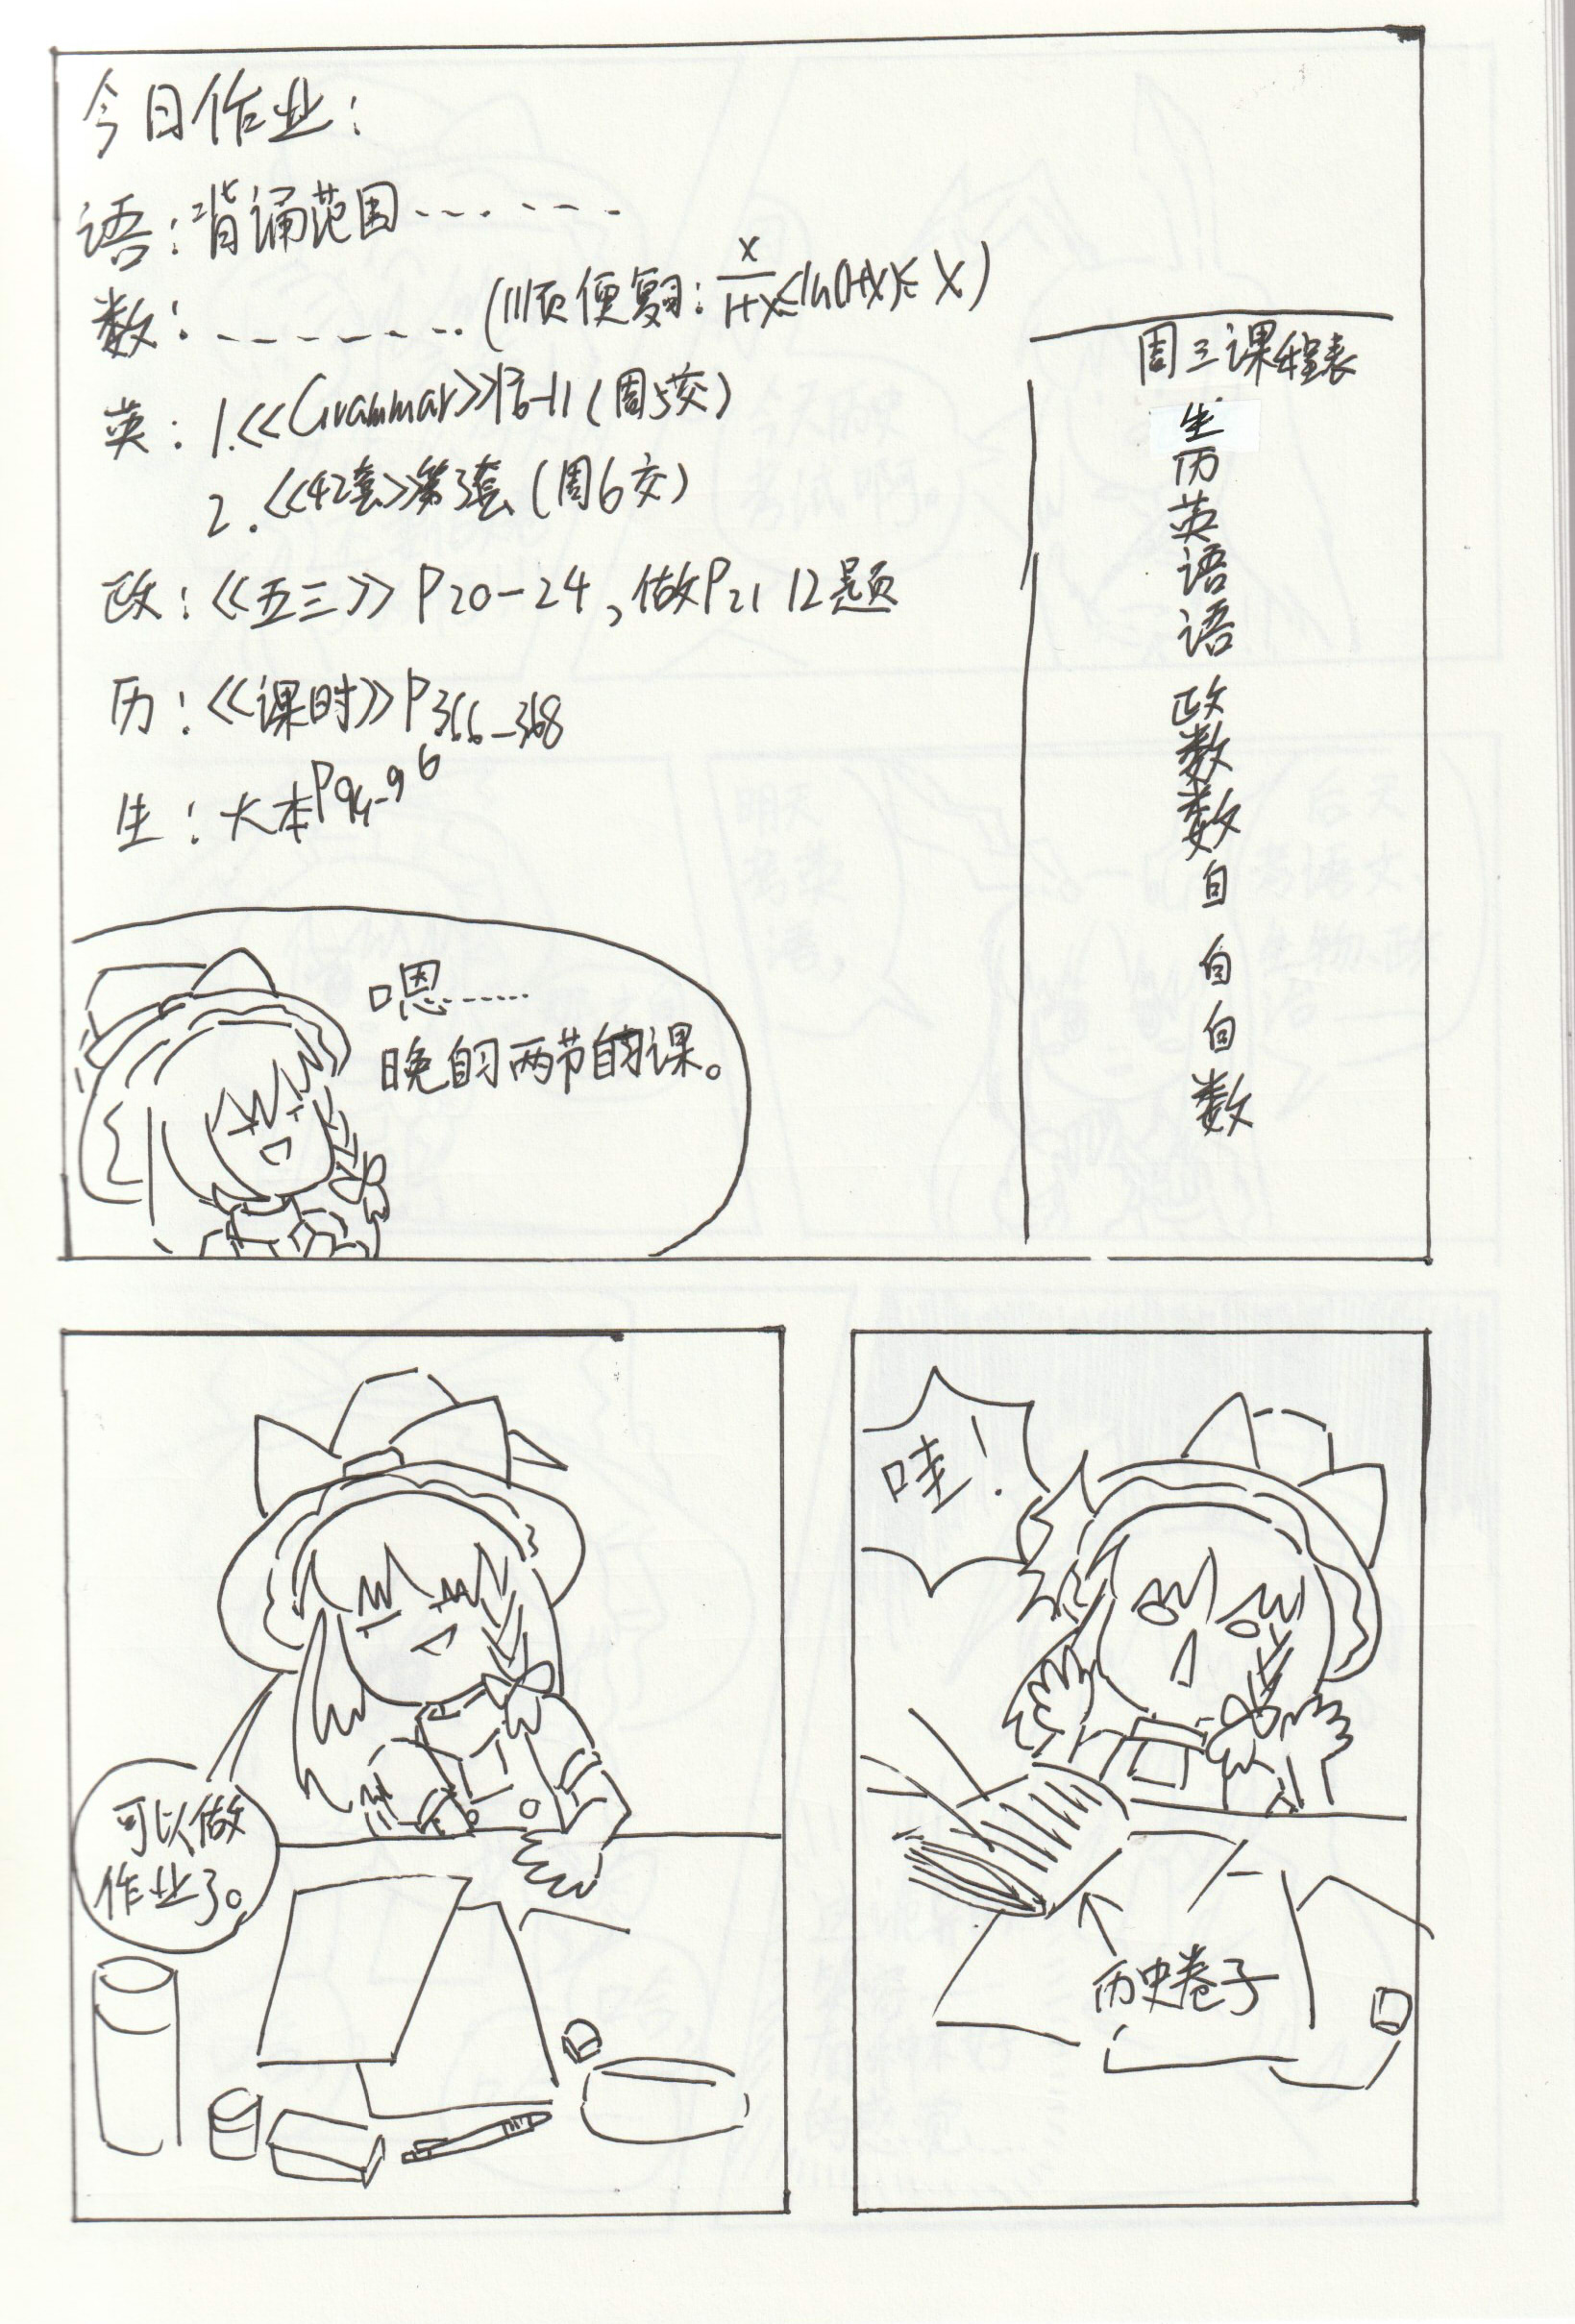 今日作业:
语:背诵范围……
数:……(顺便复习: x/1+x ≤ ln(1+x) ≤ x)
英: 1.<<Grammar>>P6-11(周5交)
2.<<42套>>第3套(周6交)
政:<<五三>> P20-24,做P21 12题
历:<<课时>>P366-368
生:大本P94-96
周三课程表
生
历
英
语
语
政
数
数
自
自
自
数
嗯……
晚自习两节自习课。
可以做
作业了。
哇!
历史卷子